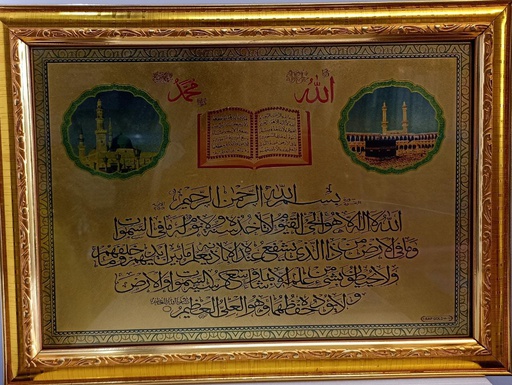 الله
محمد
بسم الله الرحمن الرحيم
الله لا إله إلا هو الحي القيوم لا تأخذه سنة ولا نوم له ما في السموات
وما في الأرض من ذا الذي يشفع عنده إلا بإذنه يعلم ما بين أيديهم وما خلفهم
ولا يحيطون بشيء من علمه إلا بما شاء وسع كرسيه السموات والأرض
ولا يؤده حفظهما وهو العلي العظيم